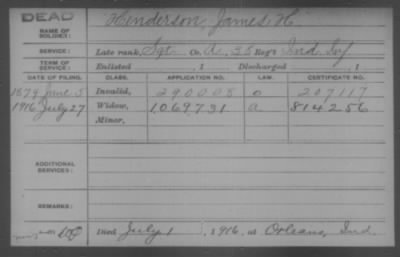 DEAD
NAME OF SOLDIER: Henderson, James H.
SERVICE: Late rank, Sgt Co. A, 38 Reg't Ind Inf
TERM OF SERVICE: Enlisted , 1 Discharged , 1
DATE OF FILING. CLASS. APPLICATION NO. LAW. CERTIFICATE NO.
1879 June 5 Invalid, 290008 o 207117
1916 July 27 Widow, 1069731 a 814256
Minor,
ADDITIONAL SERVICES:
REMARKS:
Died July 1, 1916, at Orleans, Ind